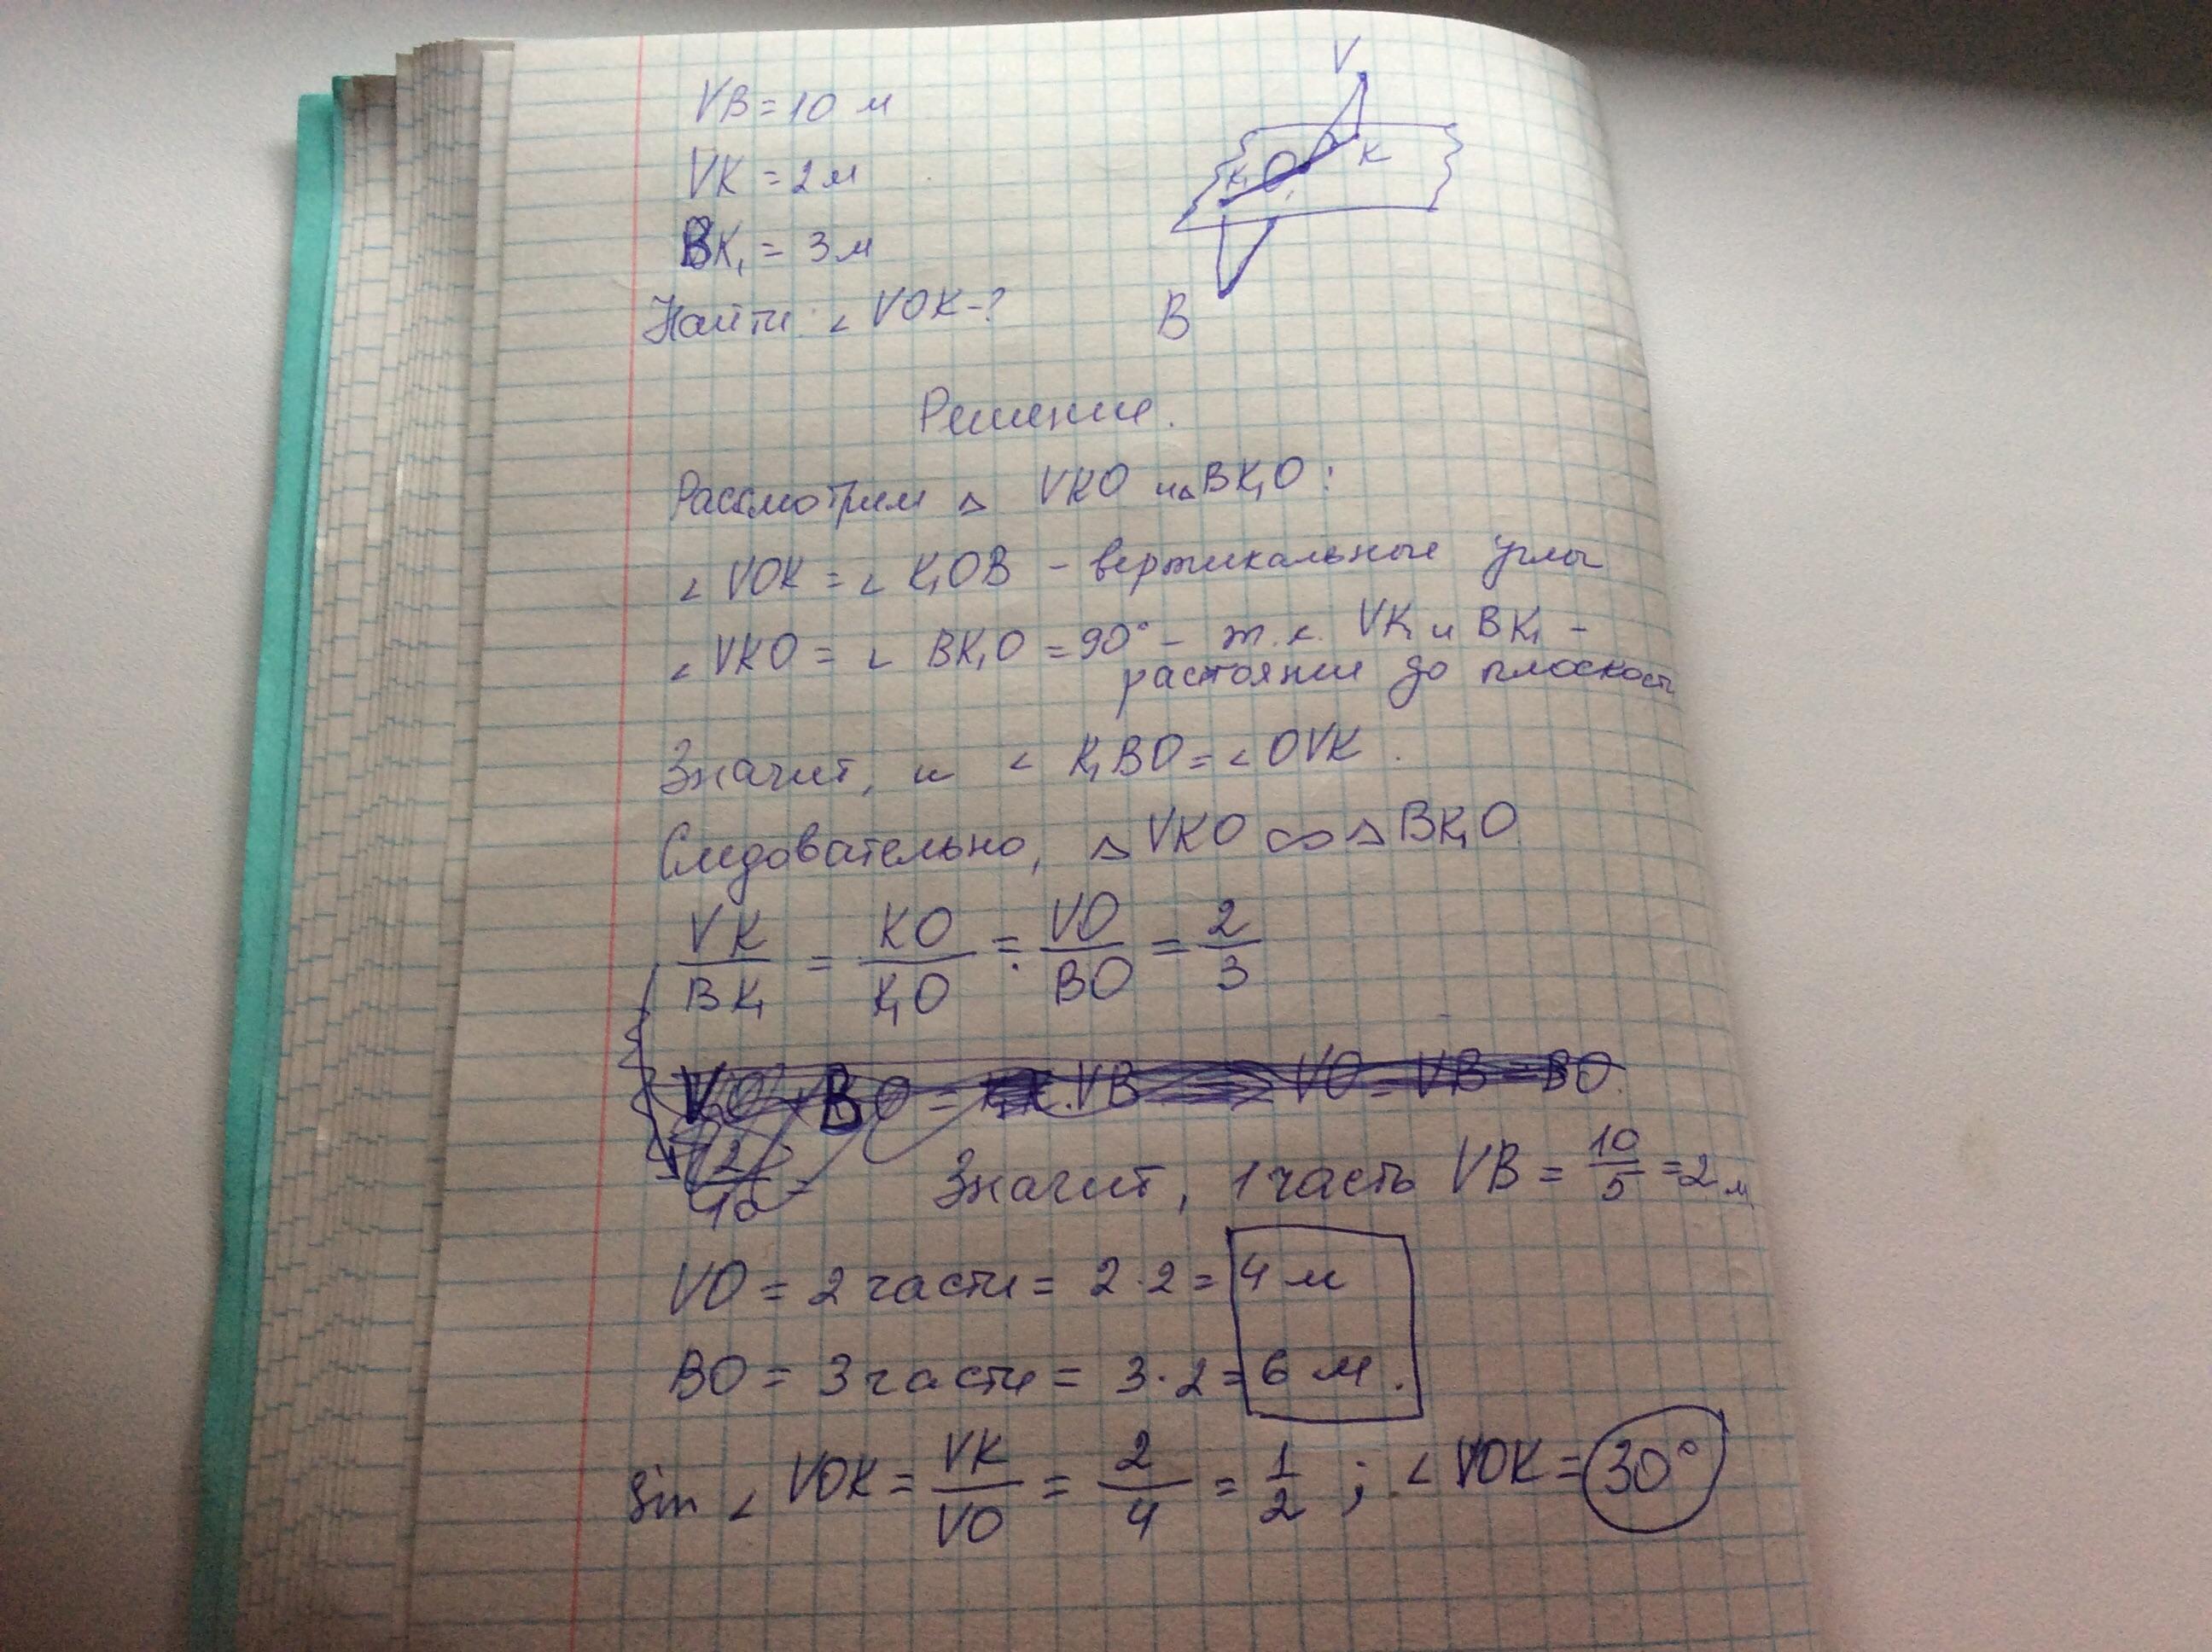 VB = 10 м
VK = 2 м
BK₁ = 3 м
Найти: ∠ VOK - ?
V
K
K₁ O
B
Решение.
Рассмотрим △ VKO и △ BK₁O :
∠ VOK = ∠ K₁OB - вертикальные углы
∠ VKO = ∠ BK₁O = 90° - т.к. VK и BK₁ -
растояние до плоскости
Значит, и ∠ K₁BO = ∠ OVK .
Следовательно, △ VKO ∞ △ BK₁O
VK/BK₁ = KO/K₁O = VO/BO = 2/3
Значит, 1 часть VB = 10/5 = 2 м
VO = 2 части = 2 · 2 = 4 м
BO = 3 части = 3 · 2 = 6 м .
Sin ∠ VOK = VK/VO = 2/4 = 1/2 ; ∠ VOK = 30°